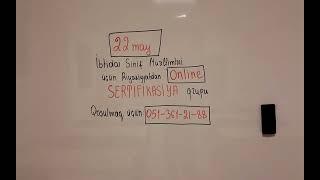 22 may
İbtidai Sinif Müəllimləri
üçün Riyaziyyatdan Online
SERTİFİKASİYA qrupu
Qoşulmaq üçün 051-361-21-88